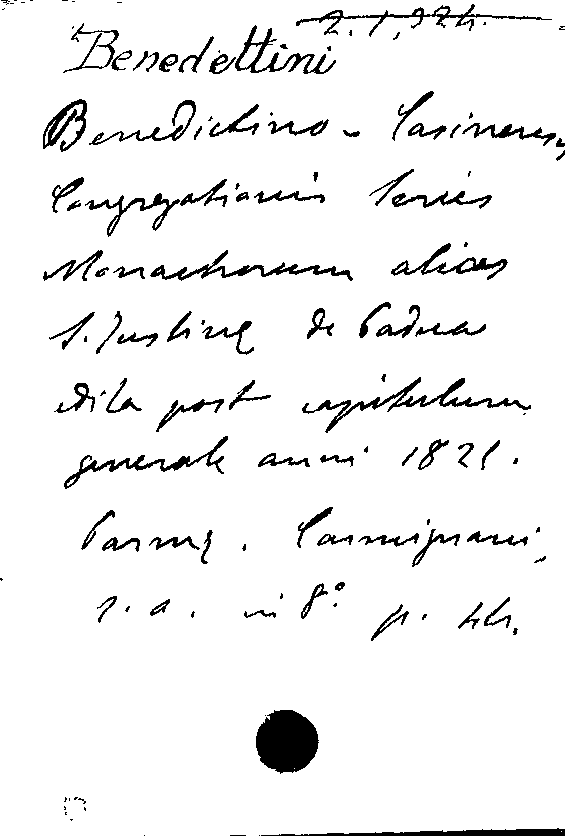 2.1.924.
Benedettini
Benedictino - Casinens
Congregationis Series
Monachorum alias
S. Justinæ de Padua
edita post capitulum
generale anni 1821.
Parmæ. Carmignani,
s. a. in 8° p. 44.